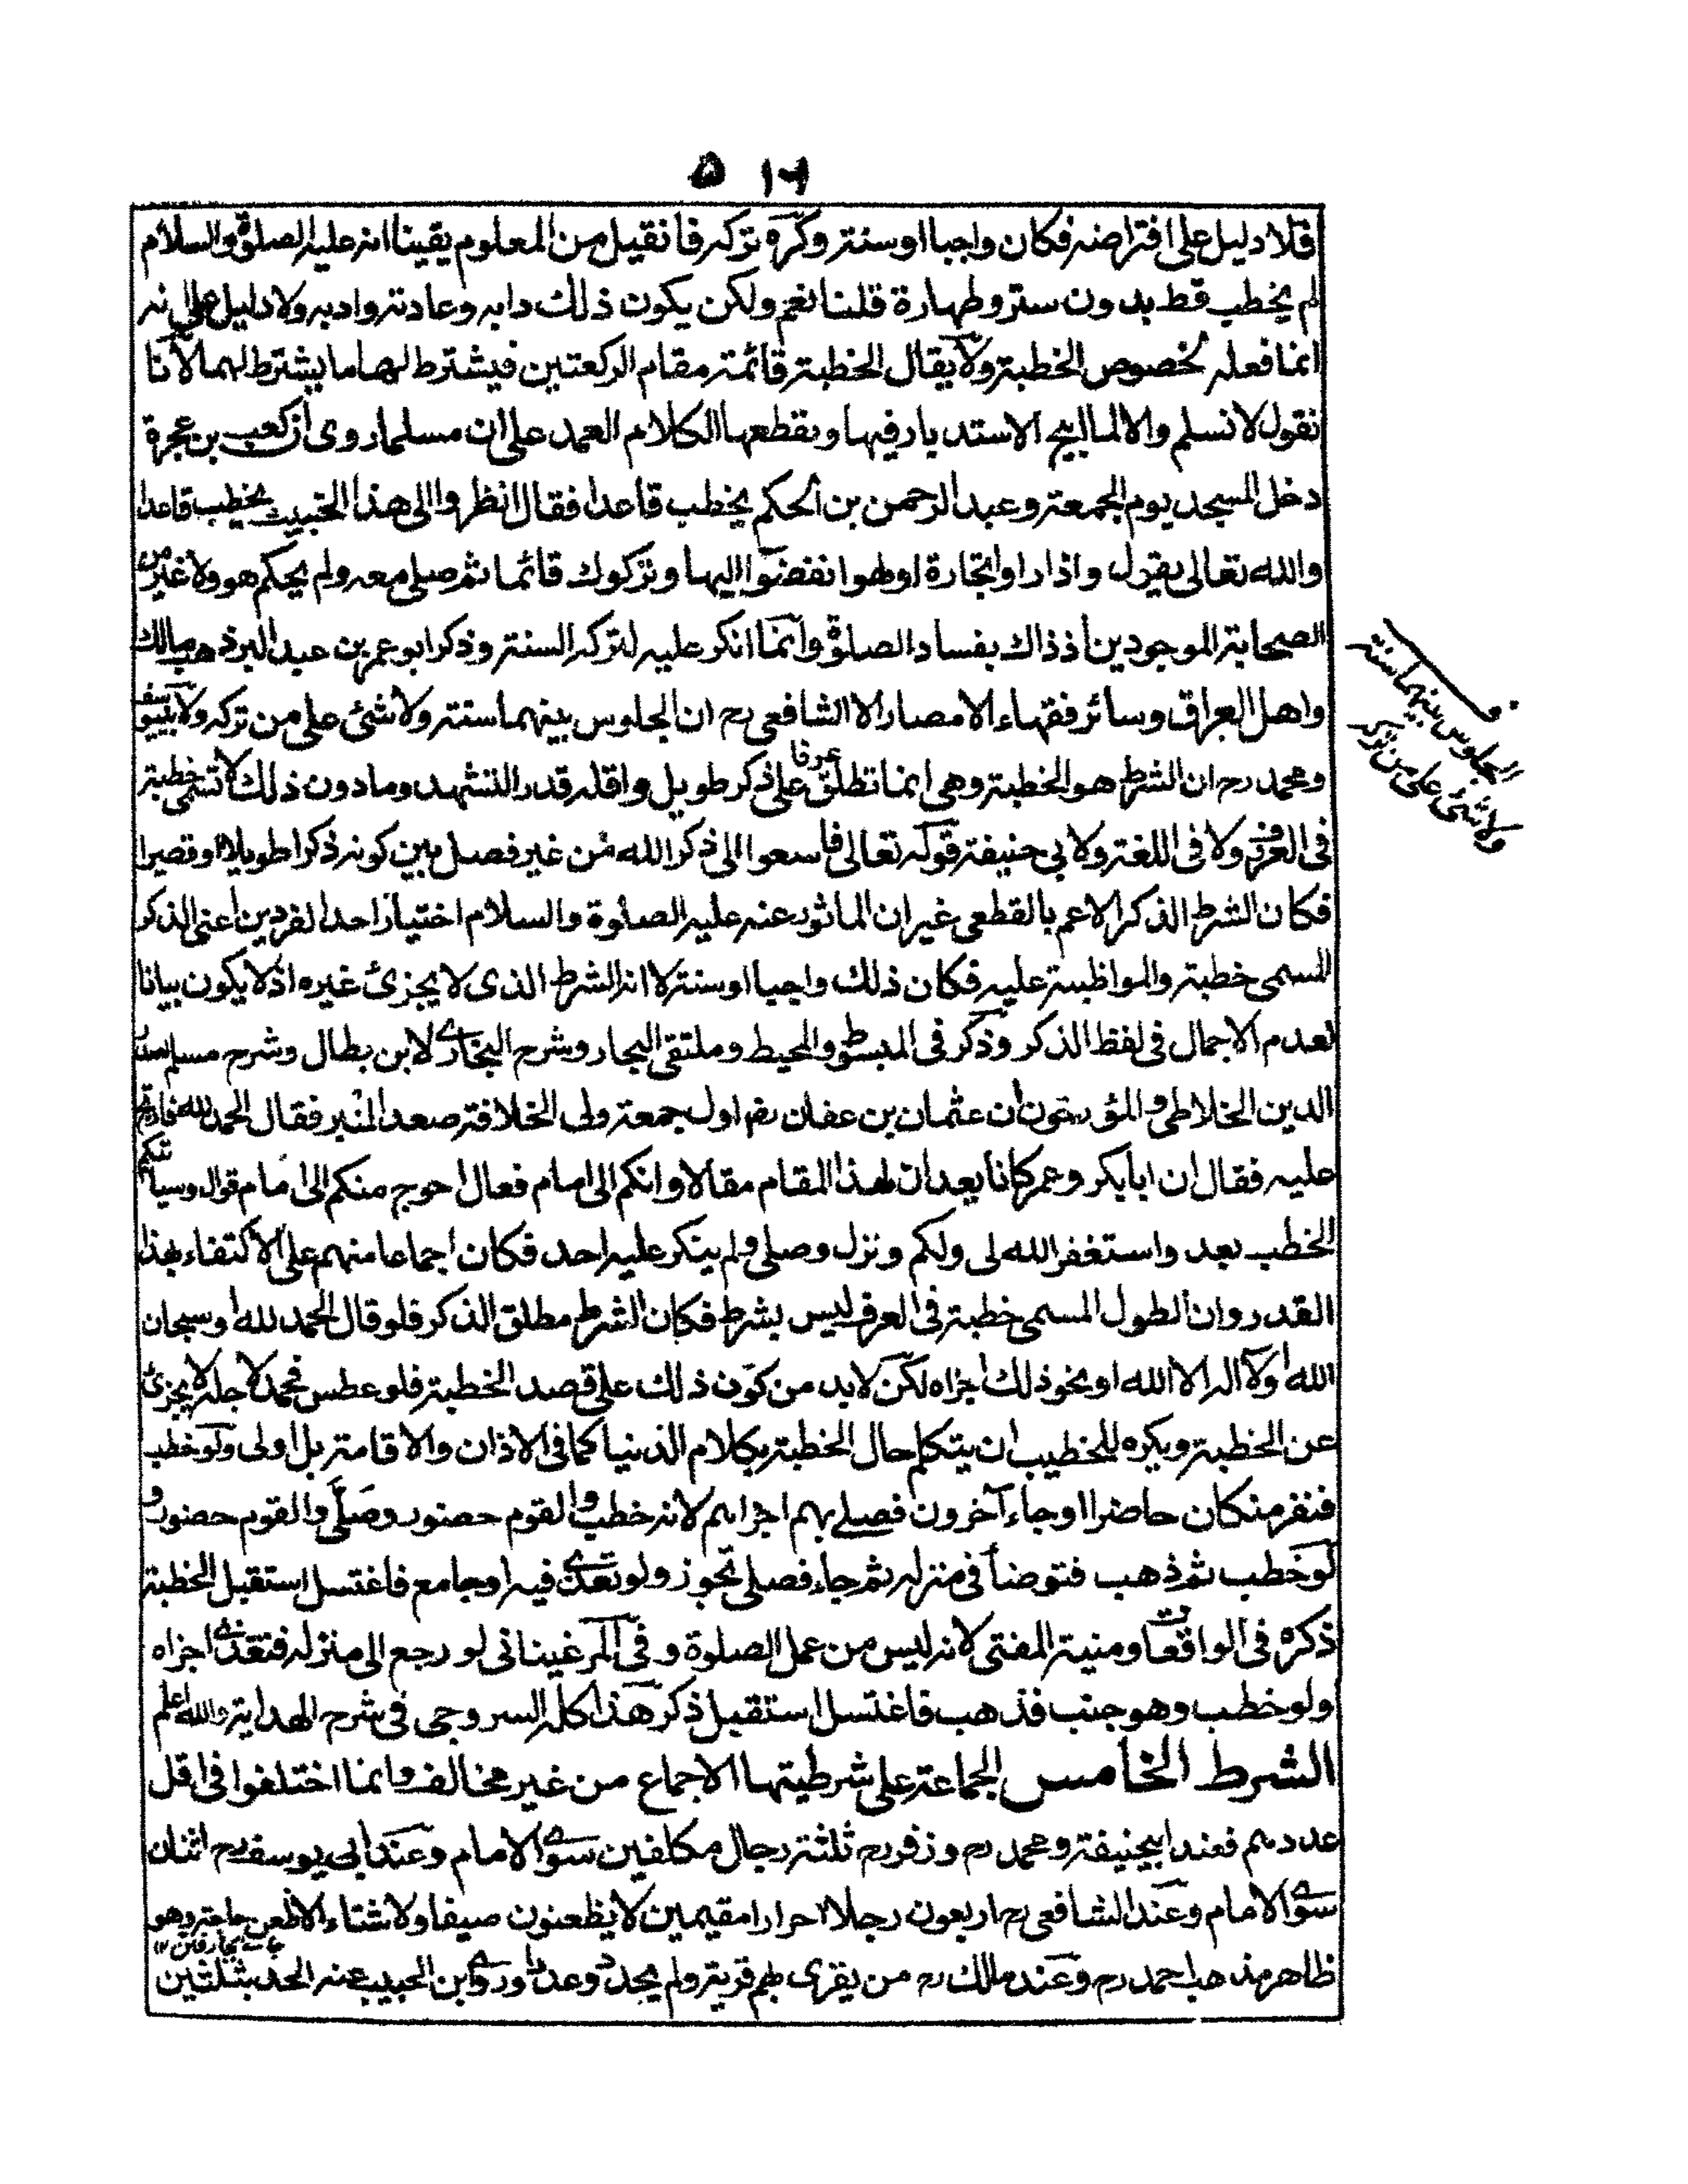 ٥١٦
فلا دليل على افتراضه فكان واجبا او سنة وكره تركه فان قيل من المعلوم يقينا انه عليه الصلوة والسلام
لم يخطب قط بدون ستر وطهارة قلنا نعم ولكن يكون ذلك دابه وعادته وادبه ولا دليل على انه
انما فعله لخصوص الخطبة ولا يقال الخطبة قائمة مقام الركعتين فيشترط لها ما يشترط لهما لانا
نقول لا نسلم والا لما ابيح الاستدبار فيها وتقطعها الكلام العمد على ان مسلما روى ان كعب بن عجرة
دخل المسجد يوم الجمعة وعبد الرحمن بن الحكم يخطب قاعدا فقال انظروا الى هذا الخبيث يخطب قاعدا
والله تعالى يقول واذا راوا تجارة او لهوا انفضوا اليها وتركوك قائما ثم صلى معه ولم يحكم هو ولا غيره من
الصحابة الموجودين اذ ذاك بفساد الصلوة وانما انكر عليه لتركه السنة وذكر ابو عمر بن عبد البر ذهب مالك
واهل العراق وسائر فقهاء الامصار الا الشافعي رح ان الجلوس بينهما سنة ولا شئ على من تركه ولابي يوسف
ومحمد رح ان الشرط هو الخطبة وهي انما تطلق عرفا على ذكر طويل واقله قدر التشهد وما دون ذلك لا تسمى خطبة
في العرف ولا في اللغة ولابي حنيفة قوله تعالى فاسعوا الى ذكر الله من غير فصل بين كونه ذكرا طويلا او قصيرا
فكان الشرط الذكر الاعم بالقطعى غير ان الماثور عنه عليه الصلوة والسلام اختيار احد الفردين اعنى الذكر
المسمى خطبة والمواظبة عليه فكان ذلك واجبا او سنة لا انه الشرط الذى لا يجزئ غيره اذ لا يكون بيانا
لعدم الاجمال في لفظ الذكر وذكر في المبسوط والمحيط وملتقى البحار وشرح البخارى لابن بطال وشرح مسلم لصدر
الدين الخلاطى والمؤرخون ان عثمان بن عفان رض اول جمعة ولى الخلافة صعد المنبر فقال الحمد لله فارتج
عليه فقال ان ابابكر وعمر كانا يعدان لهذا المقام مقالا وانكم الى امام فعال احوج منكم الى امام قوال وسياتيكم
الخطب بعد واستغفر الله لى ولكم ونزل وصلى ولم ينكر عليه احد فكان اجماعا منهم على الاكتفاء بهذا
القدر وان الطول المسمى خطبة في العرف ليس بشرط فكان الشرط مطلق الذكر فلو قال الحمد لله او سبحان
الله او لا اله الا الله او نحو ذلك اجزاه لكن لابد من كون ذلك على قصد الخطبة فلو عطس فحمد لاجله لا يجزئ
عن الخطبة ويكره للخطيب ان يتكلم حال الخطبة بكلام الدنيا كما في الاذان والاقامة بل اولى ولو خطب
فنفر من كان حاضرا وجاء آخرون فصلى بهم اجزاهم لانه خطب والقوم حضور وصلى والقوم حضور و
لو خطب ثم ذهب فتوضأ في منزله ثم جاء فصلى تجوز ولو تغدى فيه او جامع فاغتسل استقبل الخطبة
ذكره في الواقعات ومنية المفتى لانه ليس من عمل الصلوة وفي المرغينانى لو رجع الى منزله فتغدى اجزاه
ولو خطب وهو جنب فذهب فاغتسل استقبل ذكر هذا كله السروجى في شرح الهداية والله اعلم
الشرط الخامس الجماعة على شرطيتها الاجماع من غير مخالف وانما اختلفوا في اقل
عددهم فعند ابيحنيفة ومحمد رح وزفر رح ثلثة رجال مكلفين سوى الامام وعند ابى يوسف رح اثنان
سوى الامام وعند الشافعى رح اربعون رجلا احرارا مقيمين لا يظعنون صيفا ولا شتاء الا ظعن حاجة وهو
ظاهر مذهب احمد رح وعند مالك رح من يقرى بهم قرية ولم يحد وعددا وروى ابن الحبيب عنه الحد بثلثين
ف
الجلوس بينهما سنة
ولا شئ على من تركه